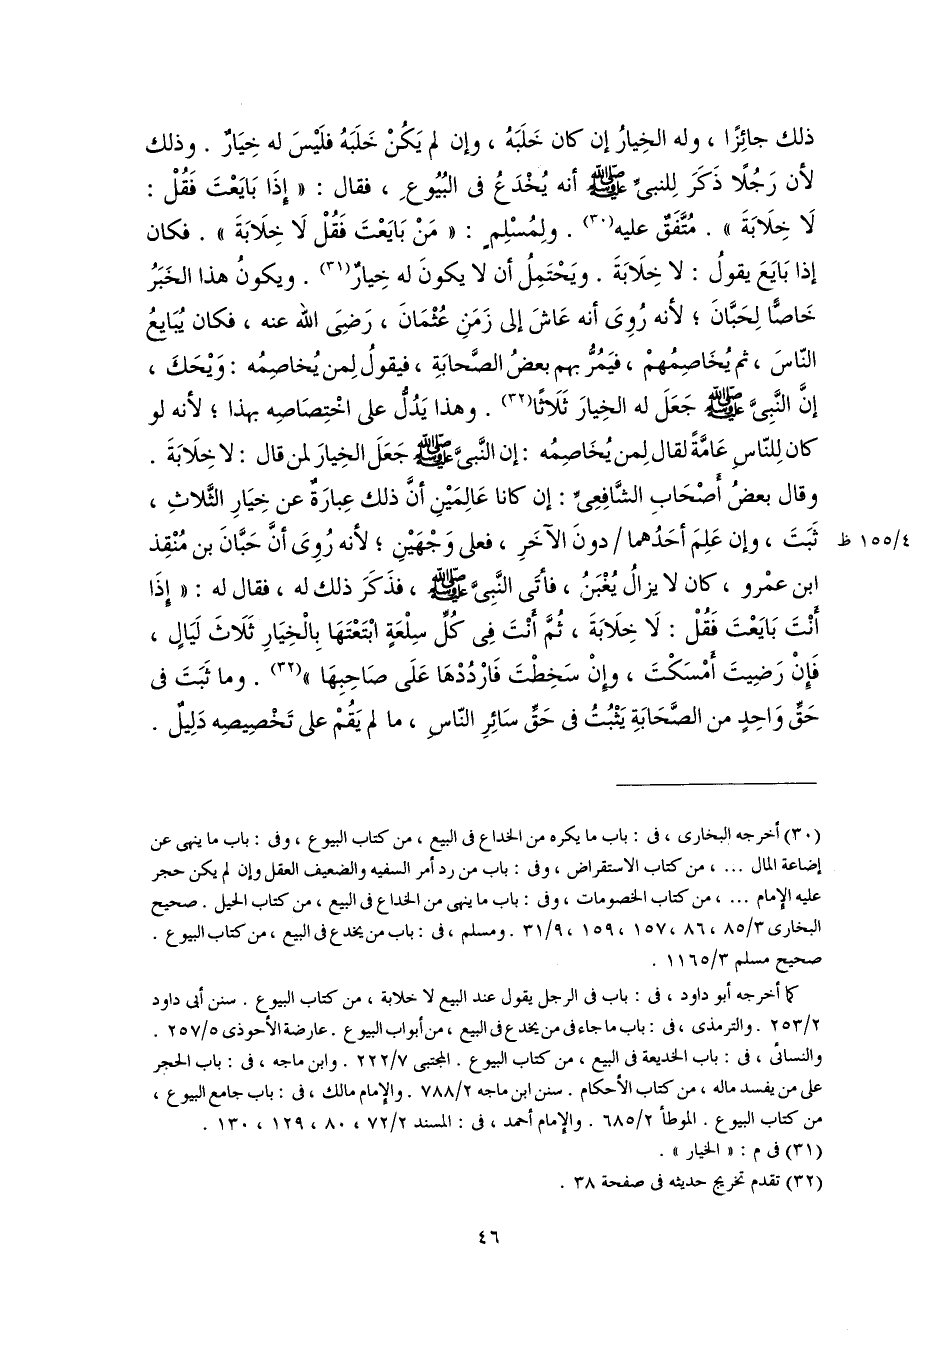 ذلك جائِزًا ، وله الخِيارُ إن كان خَلَبَهُ ، وإن لم يَكُنْ خَلَبَهُ فلَيْسَ له خِيَارٌ . وذلك
لأن رَجُلًا ذَكَرَ لِلنبىِّ ﷺ أنه يُخْدَعُ فى البُيُوعِ ، فقال : « إِذَا بَايَعْتَ فَقُلْ :
لَا خِلَابَةَ » . مُتَّفَقٌ عليه(٣٠) . ولِمُسْلِمٍ : « مَنْ بَايَعْتَ فَقُلْ لَا خِلَابَةَ » . فكان
إذا بَايَعَ يقولُ : لا خِلَابَةَ . ويَحْتَمِلُ أن لا يكونَ له خِيارٌ(٣١) . ويكونُ هذا الخَبَرُ
خاصًّا لِحَبَّانَ ؛ لأنه رُوِىَ أنه عَاشَ إلى زَمَنِ عُثْمَانَ ، رَضِىَ الله عنه ، فكان يُبَايِعُ
النّاسَ ، ثم يُخَاصِمُهُمْ ، فيَمُرُّ بهم بعضُ الصَّحابَةِ ، فيقولُ لِمن يُخاصِمُه : وَيْحَكَ ،
إنَّ النَّبِىَّ ﷺ جَعَلَ له الخِيارَ ثَلَاثًا(٣٢) . وهذا يَدُلُّ على اخْتِصَاصِه بهذا ؛ لأنه لو
كان لِلنّاسِ عَامَّةً لقال لِمن يُخَاصِمُه : إن النَّبِىَّ ﷺ جَعَلَ الخِيارَ لمن قال : لا خِلَابَةَ .
وقال بعضُ أَصْحَابِ الشَّافِعِىِّ : إن كانا عَالِمَيْنِ أنَّ ذلك عِبارَةٌ عن خِيَارِ الثَّلاثِ ،
ثَبَتَ ، وإن عَلِمَ أحَدُهما / دونَ الآخَرِ ، فعلى وَجْهَيْنِ ؛ لأنه رُوِىَ أنَّ حَبَّانَ بن مُنْقِذ ١٥٥/٤ ظ
ابن عمْرو ، كان لا يزالُ يُغْبَنُ ، فأتَى النَّبِىَّ ﷺ ، فذَكَرَ ذلك له ، فقال له : « إِذَا
أَنْتَ بَايَعْتَ فَقُلْ : لَا خِلَابَةَ ، ثُمَّ أَنْتَ فِى كُلِّ سِلْعَةٍ ابْتَعْتَهَا بِالْخِيَارِ ثَلَاثَ لَيَالٍ ،
فَإِنْ رَضِيتَ أَمْسَكْتَ ، وإِنْ سَخِطْتَ فَارْدُدْهَا عَلَى صَاحِبِهَا »(٣٢) . وما ثَبَتَ فى
حَقِّ وَاحِدٍ من الصَّحَابَةِ يَثْبُتُ فى حَقِّ سَائِرِ النّاسِ ، ما لم يَقُمْ على تَخْصِيصِه دَلِيلٌ .
(٣٠) أخرجه البخارى ، فى : باب ما يكره من الخداع فى البيع ، من كتاب البيوع ، وفى : باب ما ينهى عن
إضاعة المال ... ، من كتاب الاستقراض ، وفى : باب من رد أمر السفيه والضعيف العقل وإن لم يكن حجر
عليه الإمام ... ، من كتاب الخصومات ، وفى : باب ما ينهى من الخداع فى البيع ، من كتاب الحيل . صحيح
البخارى ٨٥/٣ ، ٨٦ ، ١٥٧ ، ١٥٩ ، ٣١/٩ . ومسلم ، فى : باب من يخدع فى البيع ، من كتاب البيوع .
صحيح مسلم ١١٦٥/٣ .
كما أخرجه أبو داود ، فى : باب فى الرجل يقول عند البيع لا خلابة ، من كتاب البيوع . سنن أبى داود
٢٥٣/٢ . والترمذى ، فى : باب ما جاء فى من يخدع فى البيع ، من أبواب البيوع . عارضة الأحوذى ٢٥٧/٥ .
والنسائى ، فى : باب الخديعة فى البيع ، من كتاب البيوع . المجتبى ٢٢٢/٧ . وابن ماجه ، فى : باب الحجر
على من يفسد ماله ، من كتاب الأحكام . سنن ابن ماجه ٧٨٨/٢ . والإمام مالك ، فى : باب جامع البيوع ،
من كتاب البيوع . الموطأ ٦٨٥/٢ . والإمام أحمد ، فى : المسند ٧٢/٢ ، ٨٠ ، ١٢٩ ، ١٣٠ .
(٣١) فى م : « الخيار » .
(٣٢) تقدم تخريج حديثه فى صفحة ٣٨ .
٤٦